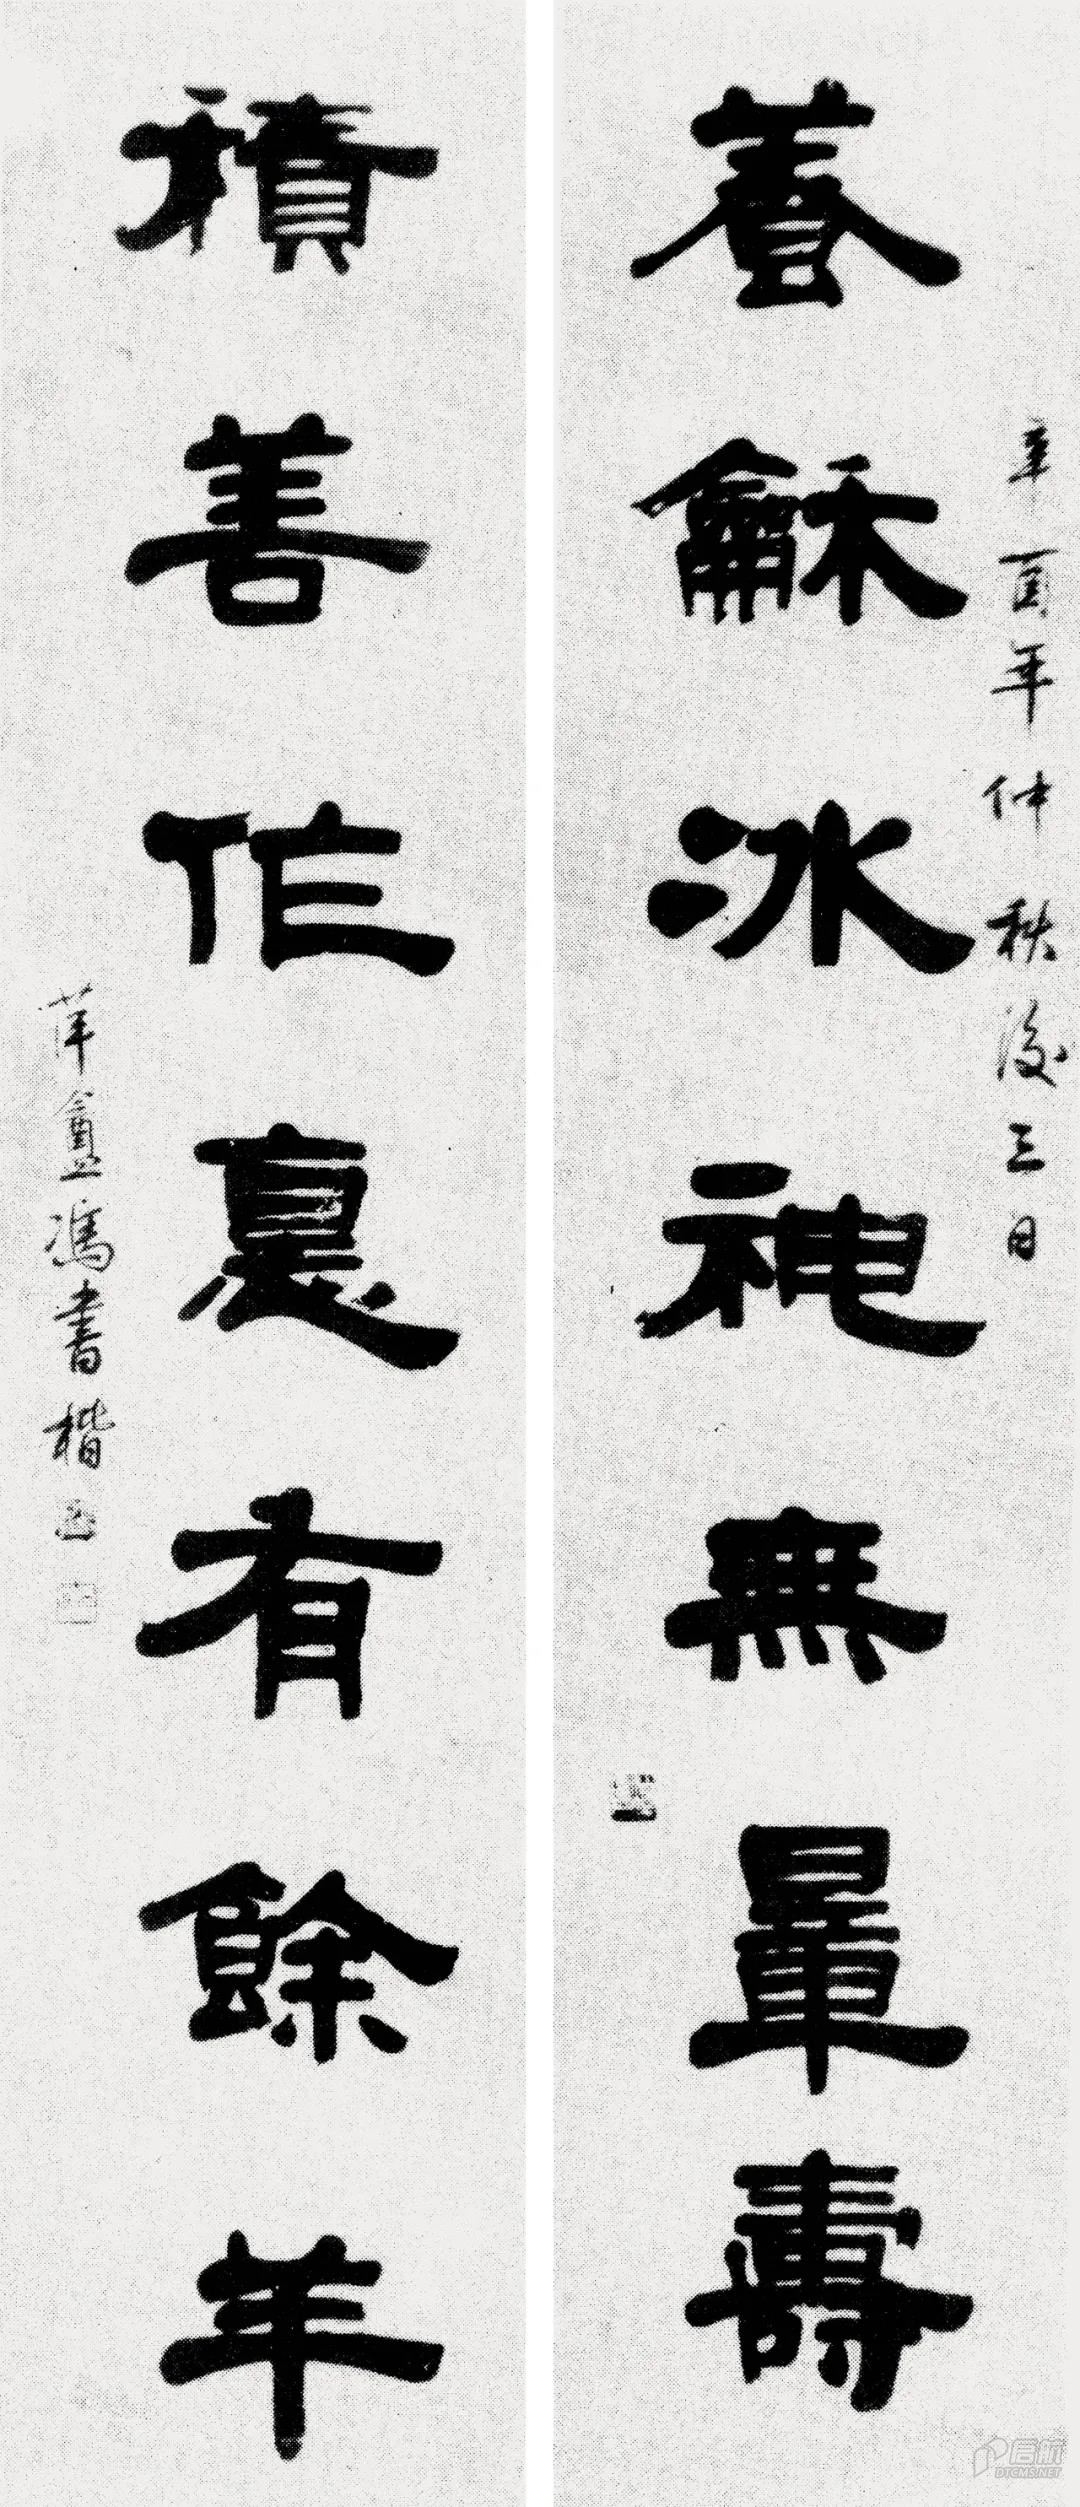 辛酉年仲秋後三日
養龢冰神無量壽
積善作悳有餘羊
苹盦馮書楷
启航
DTCMS.NET